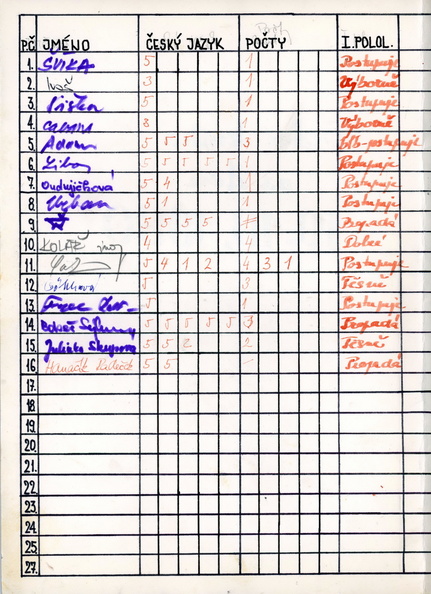 P.Č. JMÉNO ČESKÝ JAZYK POČTY I. POLOL.
1. SVIKA 5 1 Postupuje
2. 3 1 Výborně
3. Liška 5 1 Postupuje
4. 8 1 Výborně
5. Adam 5 5 5 3 blb-postupuje
6. Libor 5 5 5 5 5 1 Postupuje
7. Ondrejičková 5 4 1 Postupuje
8. Urban 5 1 1 Postupuje
9. 5 5 5 5 Propadá
10. KOLÁŽ 4 4 Dobře
11. 5 4 1 2 4 3 1 Postupuje
12. 5 3 Těsně
13. 5 1 Postupuje
14. 5 5 5 5 5 3 Propadá
15. Julietta Skupova 5 5 2 2 Těsně
16. Hanáčík 5 5 Propadá
17.
18.
19.
20.
21.
22.
23.
24.
25.
26.
27.